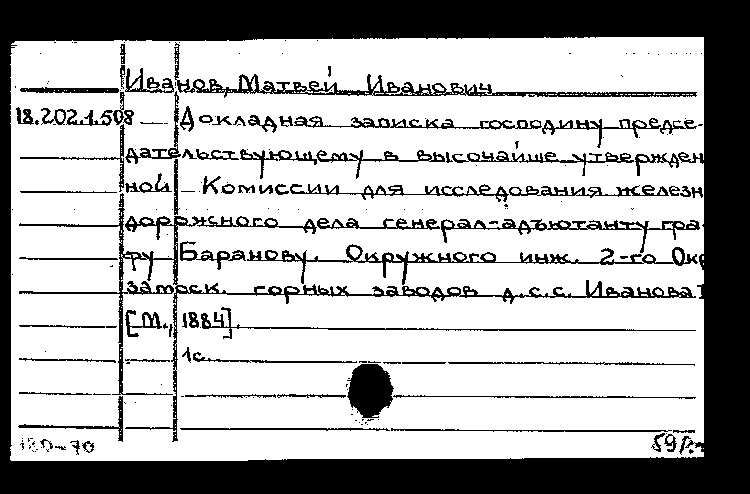 Иванов, Матвей Иванович
18.202.1.508 Докладная записка господину предсе-
дательствующему в высочайше утвержден
ной Комиссии для исследования железн
дорожного дела генерал-адъютанту гра-
фу Баранову. Окружного инж. 2-го Окр
замоск. горных заводов д.с.с. Иванова
[М., 1884].
1с.
180-70